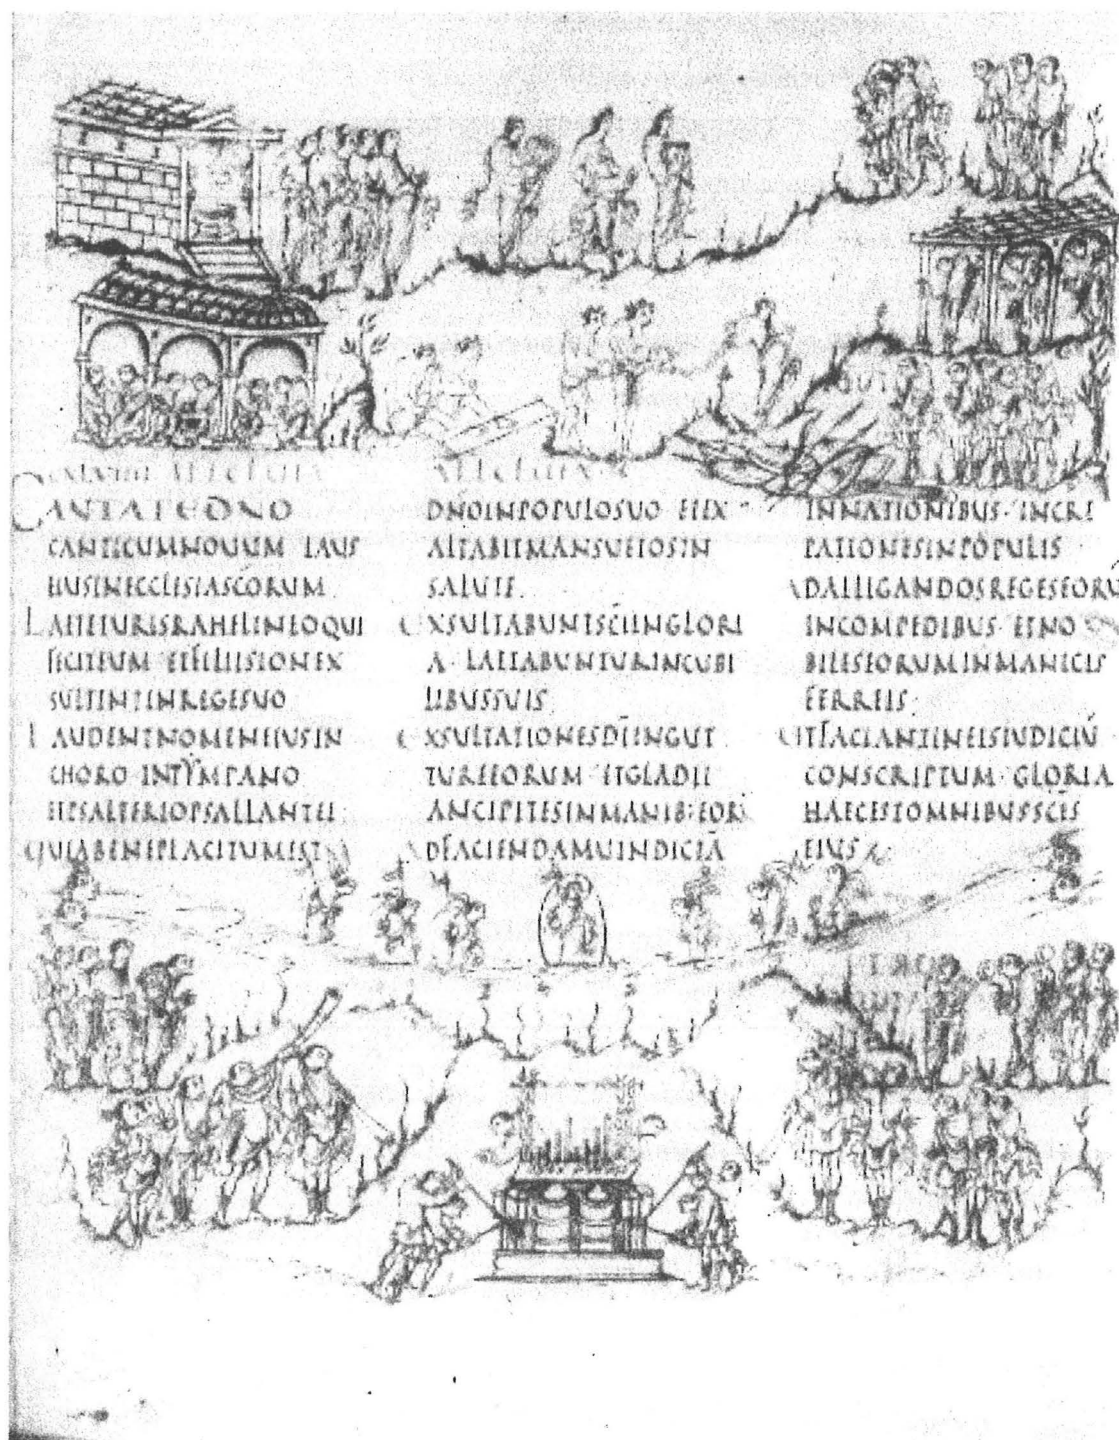 CANTATE DNO
CANTICUMNOUUM LAUS
EIUSINECCLESIASCORUM
LAETETURISRAHELINEOQUI
FECITEUM ETFILIISIONEX
SULTENTINREGESUO
LAUDENTNOMENEIUSIN
CHORO INTYMPANO
ETPSALTERIOPSALLANTEI
QUIABENEPLACITUMEST
DNOINPOPULOSUO ETEX
ALTABITMANSUETOSIN
SALUTE
EXSULTABUNTSCIINGLORI
A· LAETABUNTURINCUBI
LIBUSSUIS
EXSULTATIONESDIINGUT
TUREEORUM ETGLADII
ANCIPITESINMANIB:EOR
ADFACIENDAMUINDICTA
INNATIONIBUS· INCRE
PATIONESINPOPULIS
ADALLIGANDOSREGESEORU
INCOMPEDIBUS· ETNO
BILESEORUMINMANICIS
FERREIS·
UTFACIANTINEISIUDICIU
CONSCRIPTUM· GLORIA
HAECESTOMNIBUSSCIS
EIUS